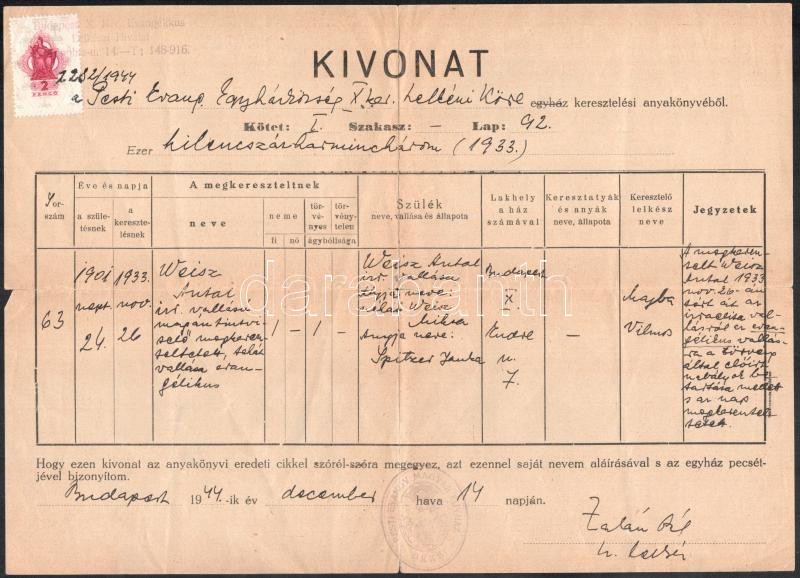 Budapest X. Ker. Evangélikus
Lelkészi Hivatal
14.—T: 148-916.
2
PENGŐ
KIVONAT
2282/1944
a Pesti Evang. Egyházközség X. ker. lelkészi Köre egyház keresztelési anyakönyvéből.
Kötet: I. Szakasz: – Lap: 92.
Ezer kilencszázharminchárom (1933.)
Sor-
szám
Év és napja
a szüle-
tésnek
a
kereszte-
lésnek
A megkereszteltnek
neve
neme
fi
nő
tör-
vé-
nyes
tör-
vény-
telen
ágybólisága
Szülék
neve, vallása és állapota
Lakhely
a ház
számával
Keresztatyák
és anyák
neve, állapota
Keresztelő
lelkész
neve
Jegyzetek
63
1901
szept.
24.
1933.
nov.
26
Weisz
Antal
izr. vallású
magántiszt-
viselő megkeresz-
teltetett, tehát
vallása evan-
gélikus
1
–
1
–
Weisz Antal
izr. vallású
Atyja neve:
néhai Weisz
Miksa
Anyja neve:
Spitzer Janka
Budapest
X
Endre
u.
7.
–
Majba
Vilmos
A megkeresz-
telt Weisz
Antal 1933
nov. 26-án
tért át az
izraelita val-
lásról ev evan-
gélikus vallás-
ra a törvény
által előírt
szabályok be-
tartása mellett
s az nap
megkeresztel-
tetett.
darabanth
Hogy ezen kivonat az anyakönyvi eredeti cikkel szóról-szóra megegyez, azt ezennel saját nevem aláírásával s az egyház pecsét-
jével bizonyítom.
Budapest 1944.-ik év december hava 14 napján.
Zalán Pál
h. lelkész